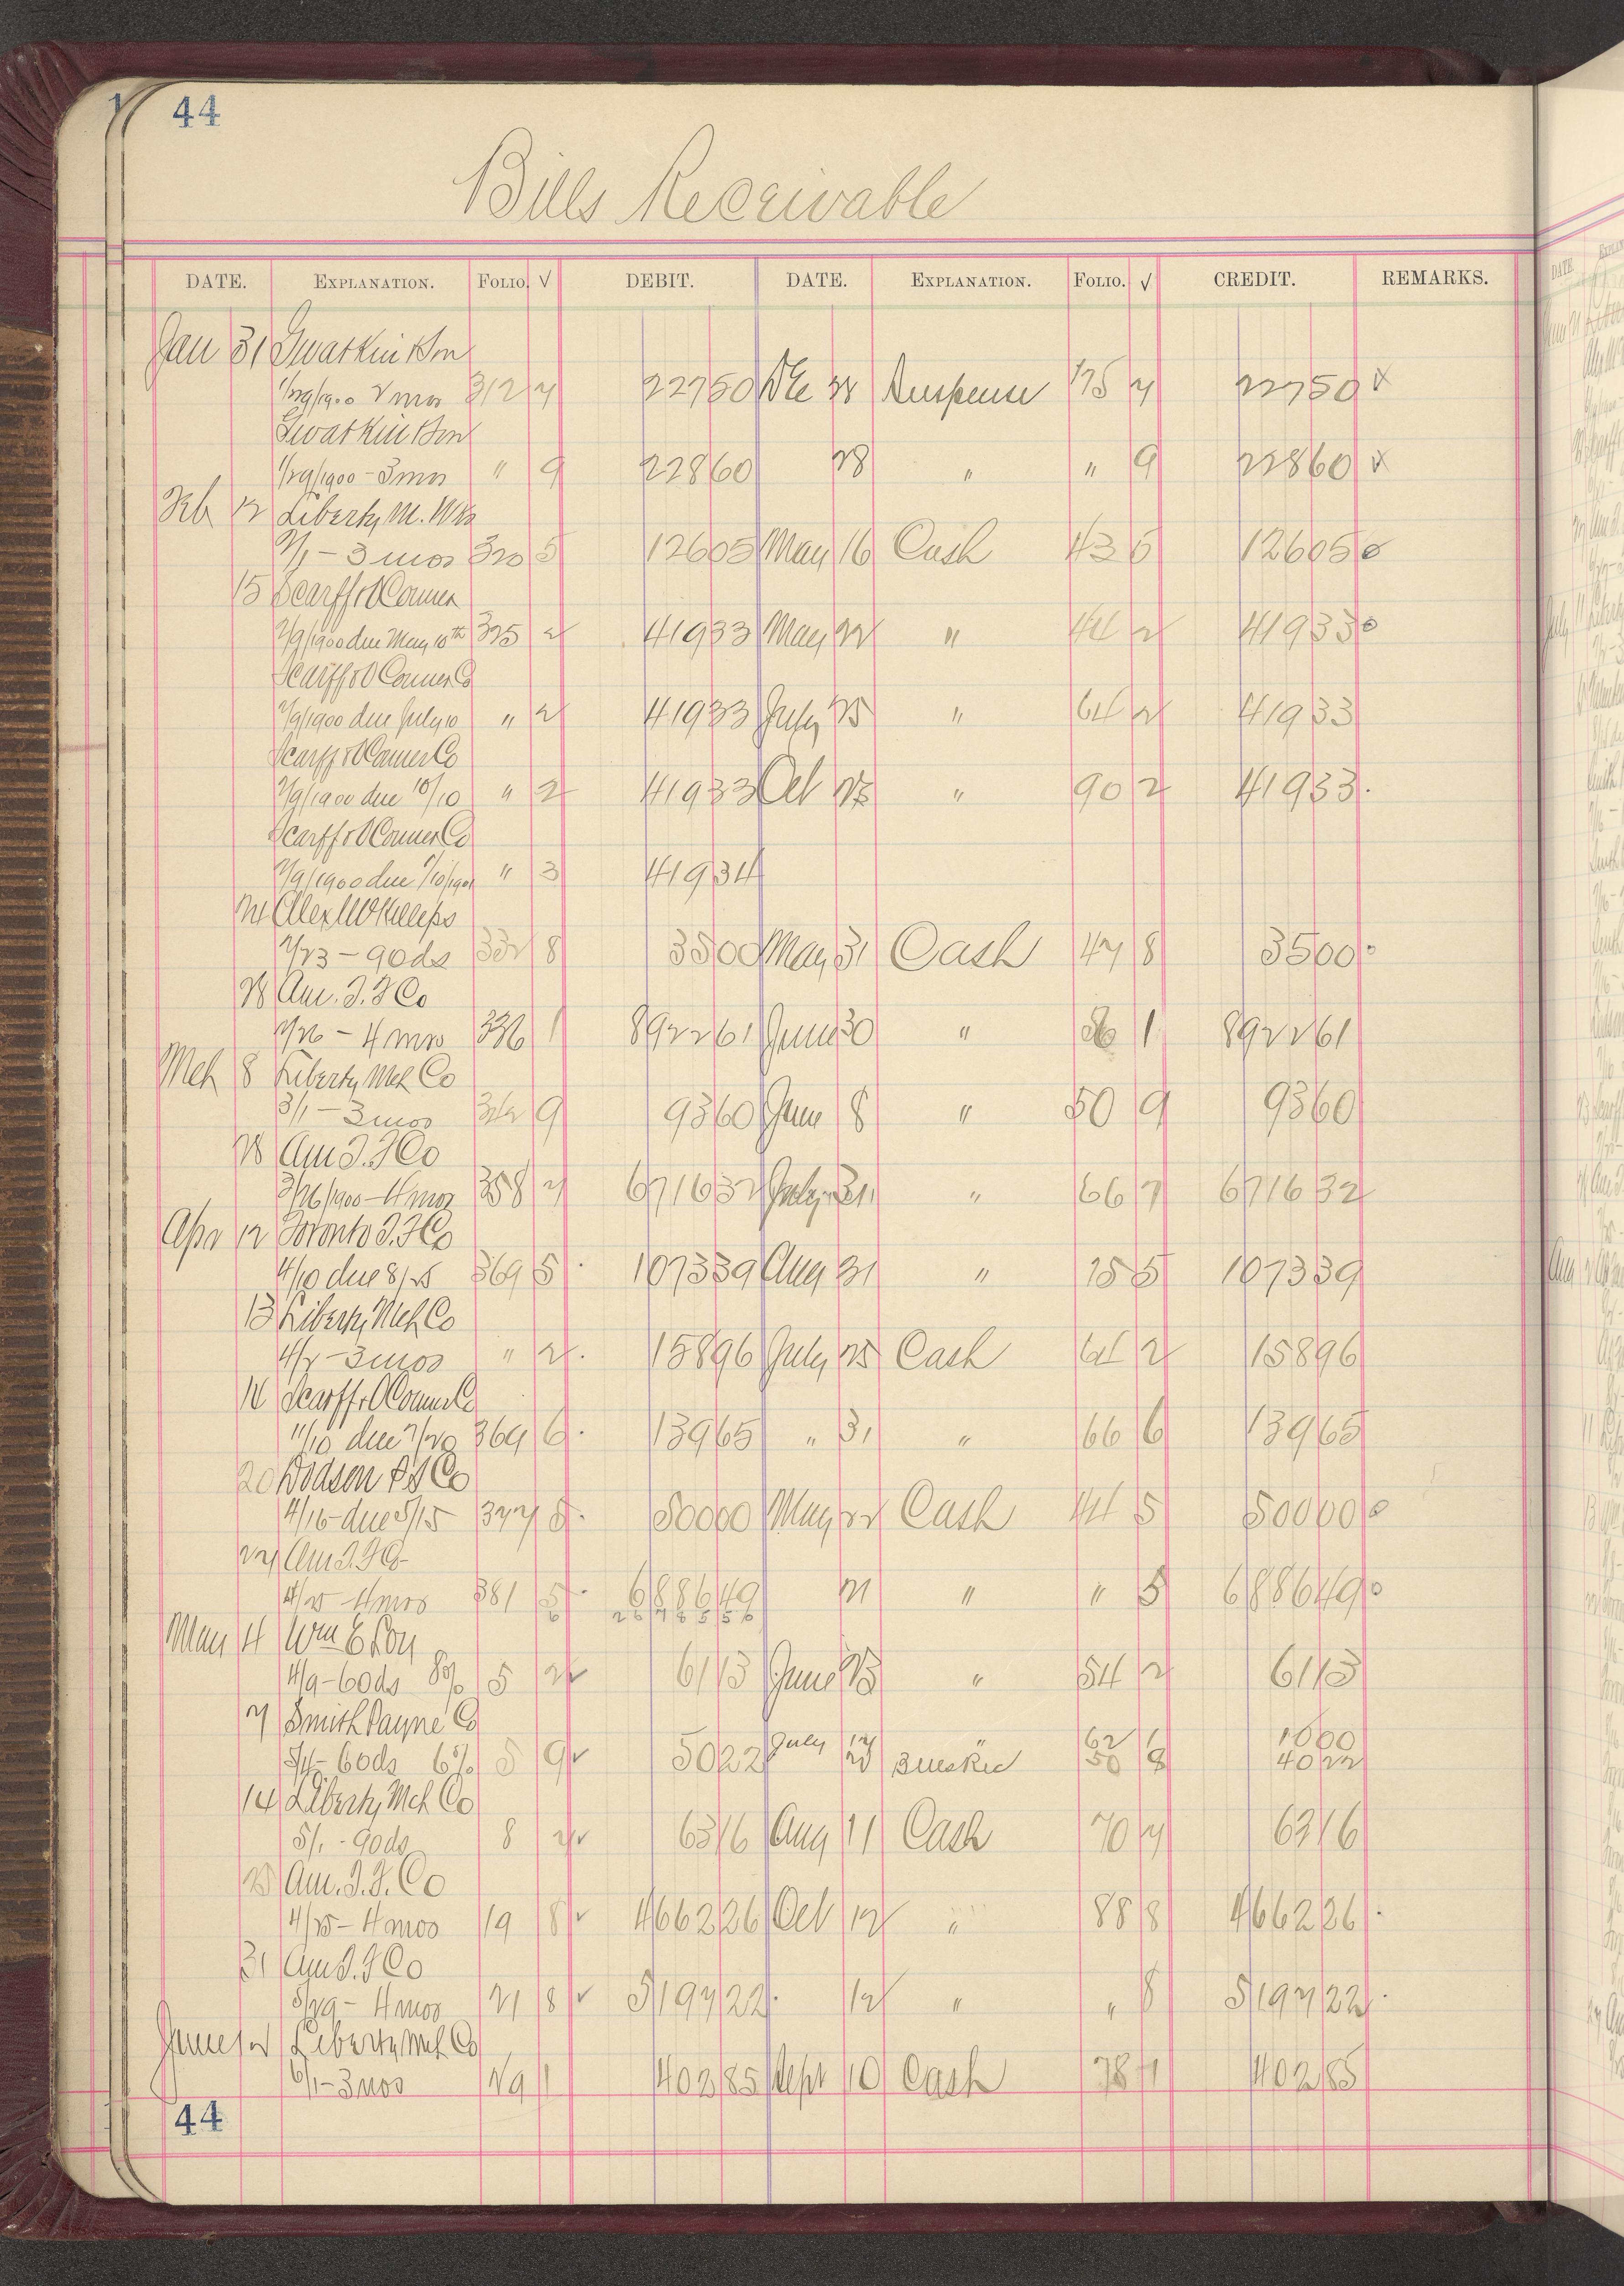 44
Bills Receivable
DATE. EXPLANATION. FOLIO. √ DEBIT. DATE. EXPLANATION. FOLIO. √ CREDIT. REMARKS.
Jan 31 Gwatkin & Son
1/29/1900 2 mos 312 7 227 50 Dec 28 Suspense 175 7 227 50 x
Gwatkin & Son
1/29/1900 - 3 mos " 9 228 60 28 " " 9 228 60 x
Feb 12 Liberty M. Wks
2/1 - 3 mos 320 5 126 05 May 16 Cash 43 5 126 05 o
15 Scarff & OConner
2/9/1900 due May 10th 325 2 419 33 May 22 " 44 2 419 33 o
Scarff & OConner Co
2/9/1900 due July 10 " 2 419 33 July 25 " 64 2 419 33
Scarff & OConner Co
2/9/1900 due 10/10 " 2 419 33 Oct 25 " 90 2 419 33
Scarff & OConner Co
2/9/1900 due 1/10/1901 " 3 419 34
24 Alex
2/23 - 90 ds 332 8 35 00 May 31 Cash 47 8 35 00 o
28 Am. T. F Co
2/26 - 4 mos 336 1 8922 61 June 30 " 56 1 8922 61
Mch 8 Liberty Mch Co
3/1 - 3 mos 342 9 93 60 June 8 " 50 9 93 60
28 Am T. F Co
3/26/1900 - 4 mos 358 7 6716 32 July 31 " 66 7 6716 32
Apr 12 Toronto T. F Co
4/10 due 8/25 369 5 1073 39 Aug 31 " 75 5 1073 39
13 Liberty Mch Co
4/2 - 3 mos " 2 158 96 July 25 Cash 64 2 158 96
Scarff & OConner Co
due 7/20 369 6 139 65 " 31 " 66 6 139 65
20 Dodson P S Co
4/16 - due 5/15 377 5 500 00 May 22 Cash 44 5 500 00 o
27 Am T. F Co
4/25 - 4 mos 381 5 6886 49 21 " " 5 6886 49 o
6 26785 56
May 4 Wm E Roy
4/9 - 60 ds 8% 5 2 √ 61 13 June 25 " 54 2 61 13
7 Smith Payne Co
5/4 - 60 ds 6% 5 9 √ 50 22 July 17 " 62 1 10 00
25 50 8 40 22
14 Liberty Mch Co
5/1 - 90 ds 8 2 √ 63 16 Aug 11 Cash 70 7 63 16
25 Am. T. F. Co
4/25 - 4 mos 19 8 √ 4662 26 Oct 12 " 88 8 4662 26
31 Am T. F Co
5/29 - 4 mos 21 8 √ 5197 22 12 " " 8 5197 22
June Liberty Mch Co
6/1 - 3 mos 29 1 402 85 Sept 10 Cash 78 1 402 85
44